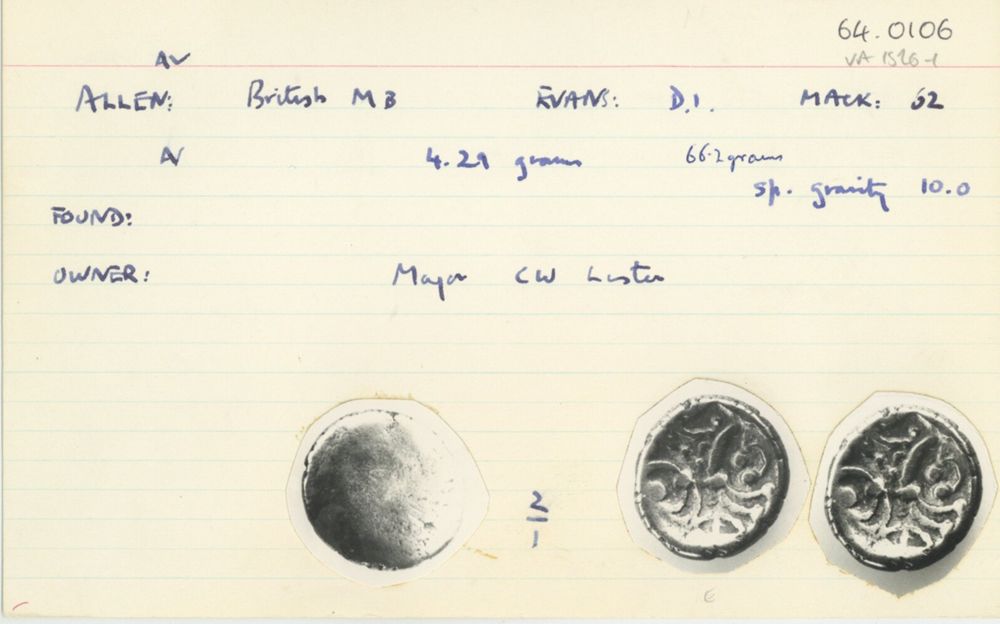 64.0106
VA 1526-1
AV
ALLEN: British M B EVANS: D.1. MACK: 62
AV 4.29 grams 66.2 grams
sp. gravity 10.0
FOUND:
OWNER: Major CW Lister
2
1
E